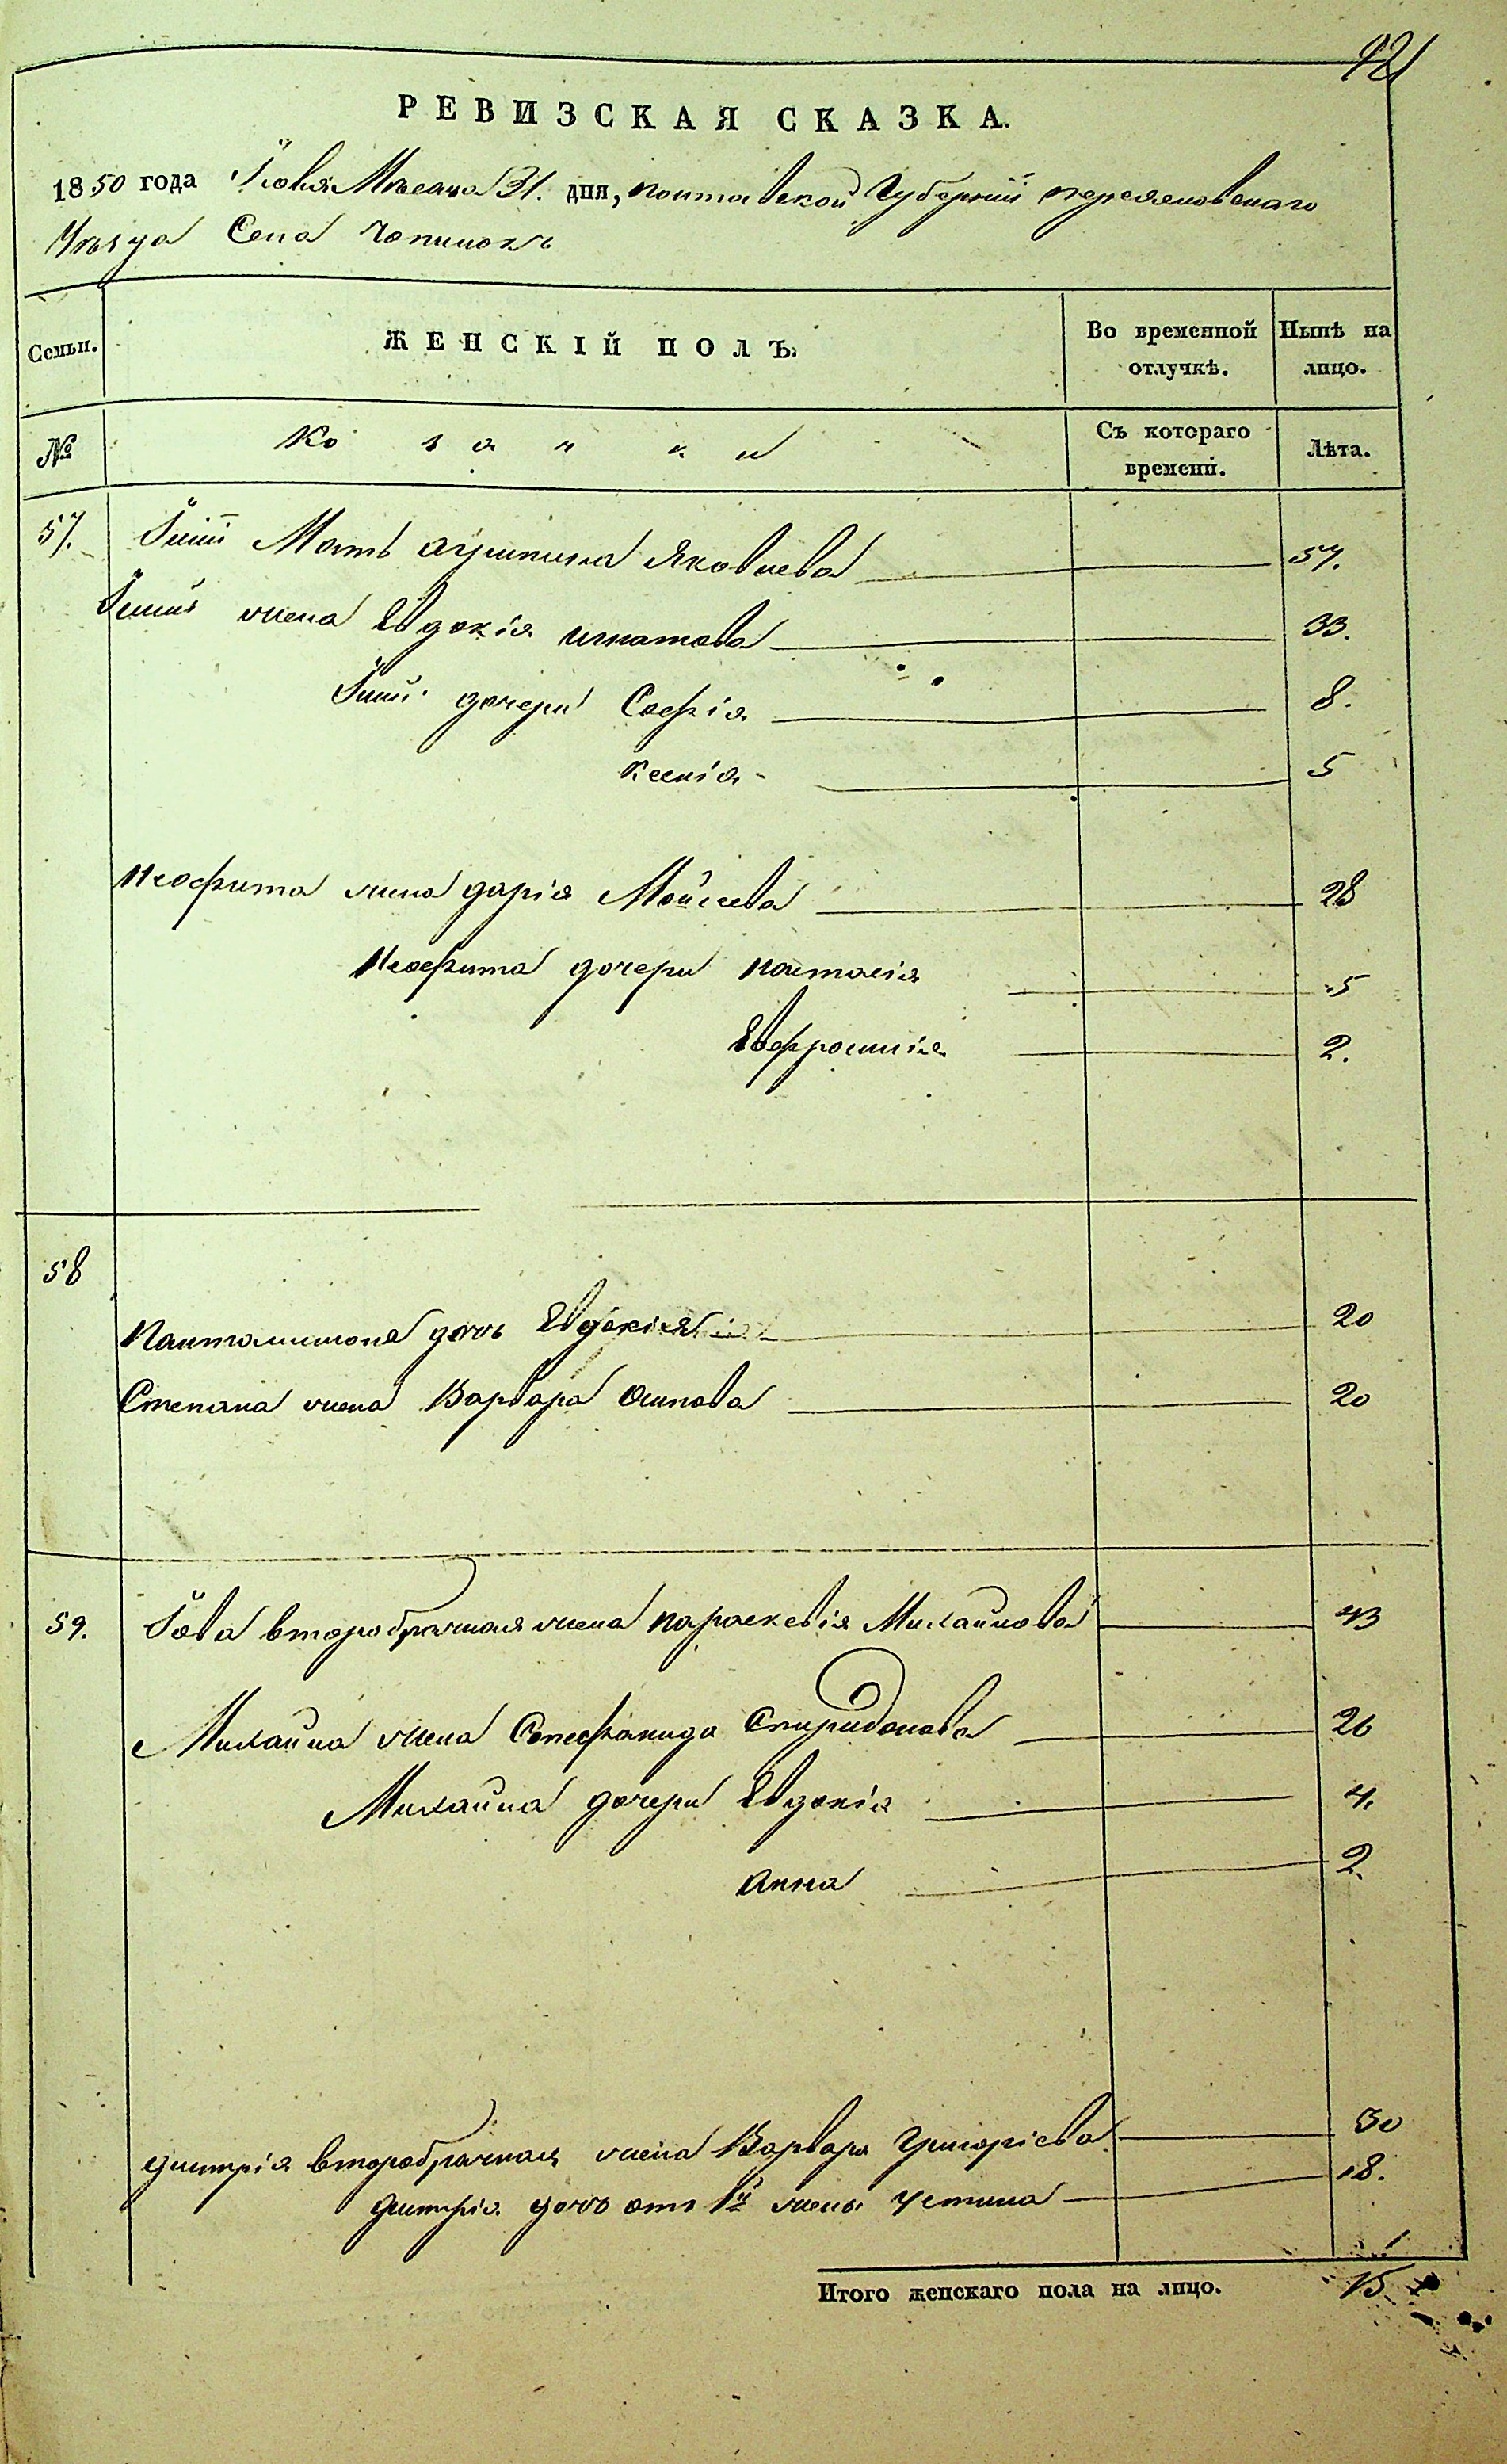 421
РЕВИЗСКАЯ СКАЗКА.
1850 года Іюля Мѣсяца 31. дня, полтавской Губерніи переясловскаго
Уѣзда Села Чопилокъ
Семьи.
ЖЕНСКІЙ ПОЛЪ.
Во временной отлучкѣ.
Нынѣ на лицо.
№
Козачки
Съ котораго времени.
Лѣта.
57. Мать агрипина Яковлева 57.
жена Евдокія игнатова 33.
дочери Софія 8.
Ксенія 5
Неофита жена дарія Мойсеева 28
Неофита дочери настасія 5
Евфросинія 2.
58
Пантелимона дочь Евдокія 20
Степана жена Варвара Осипова 20
59. Іова второбрачная жена параскевія Михайлова 43
Михайла жена Стефанида Спиридонова 26
Михайла дочери Евдокія 4.
анна 2.
дмитрія второбрачная жена Варвара Григоріева 30
дмитрія дочь отъ 1й жены устина 18.
Итого женскаго пола на лицо. 15